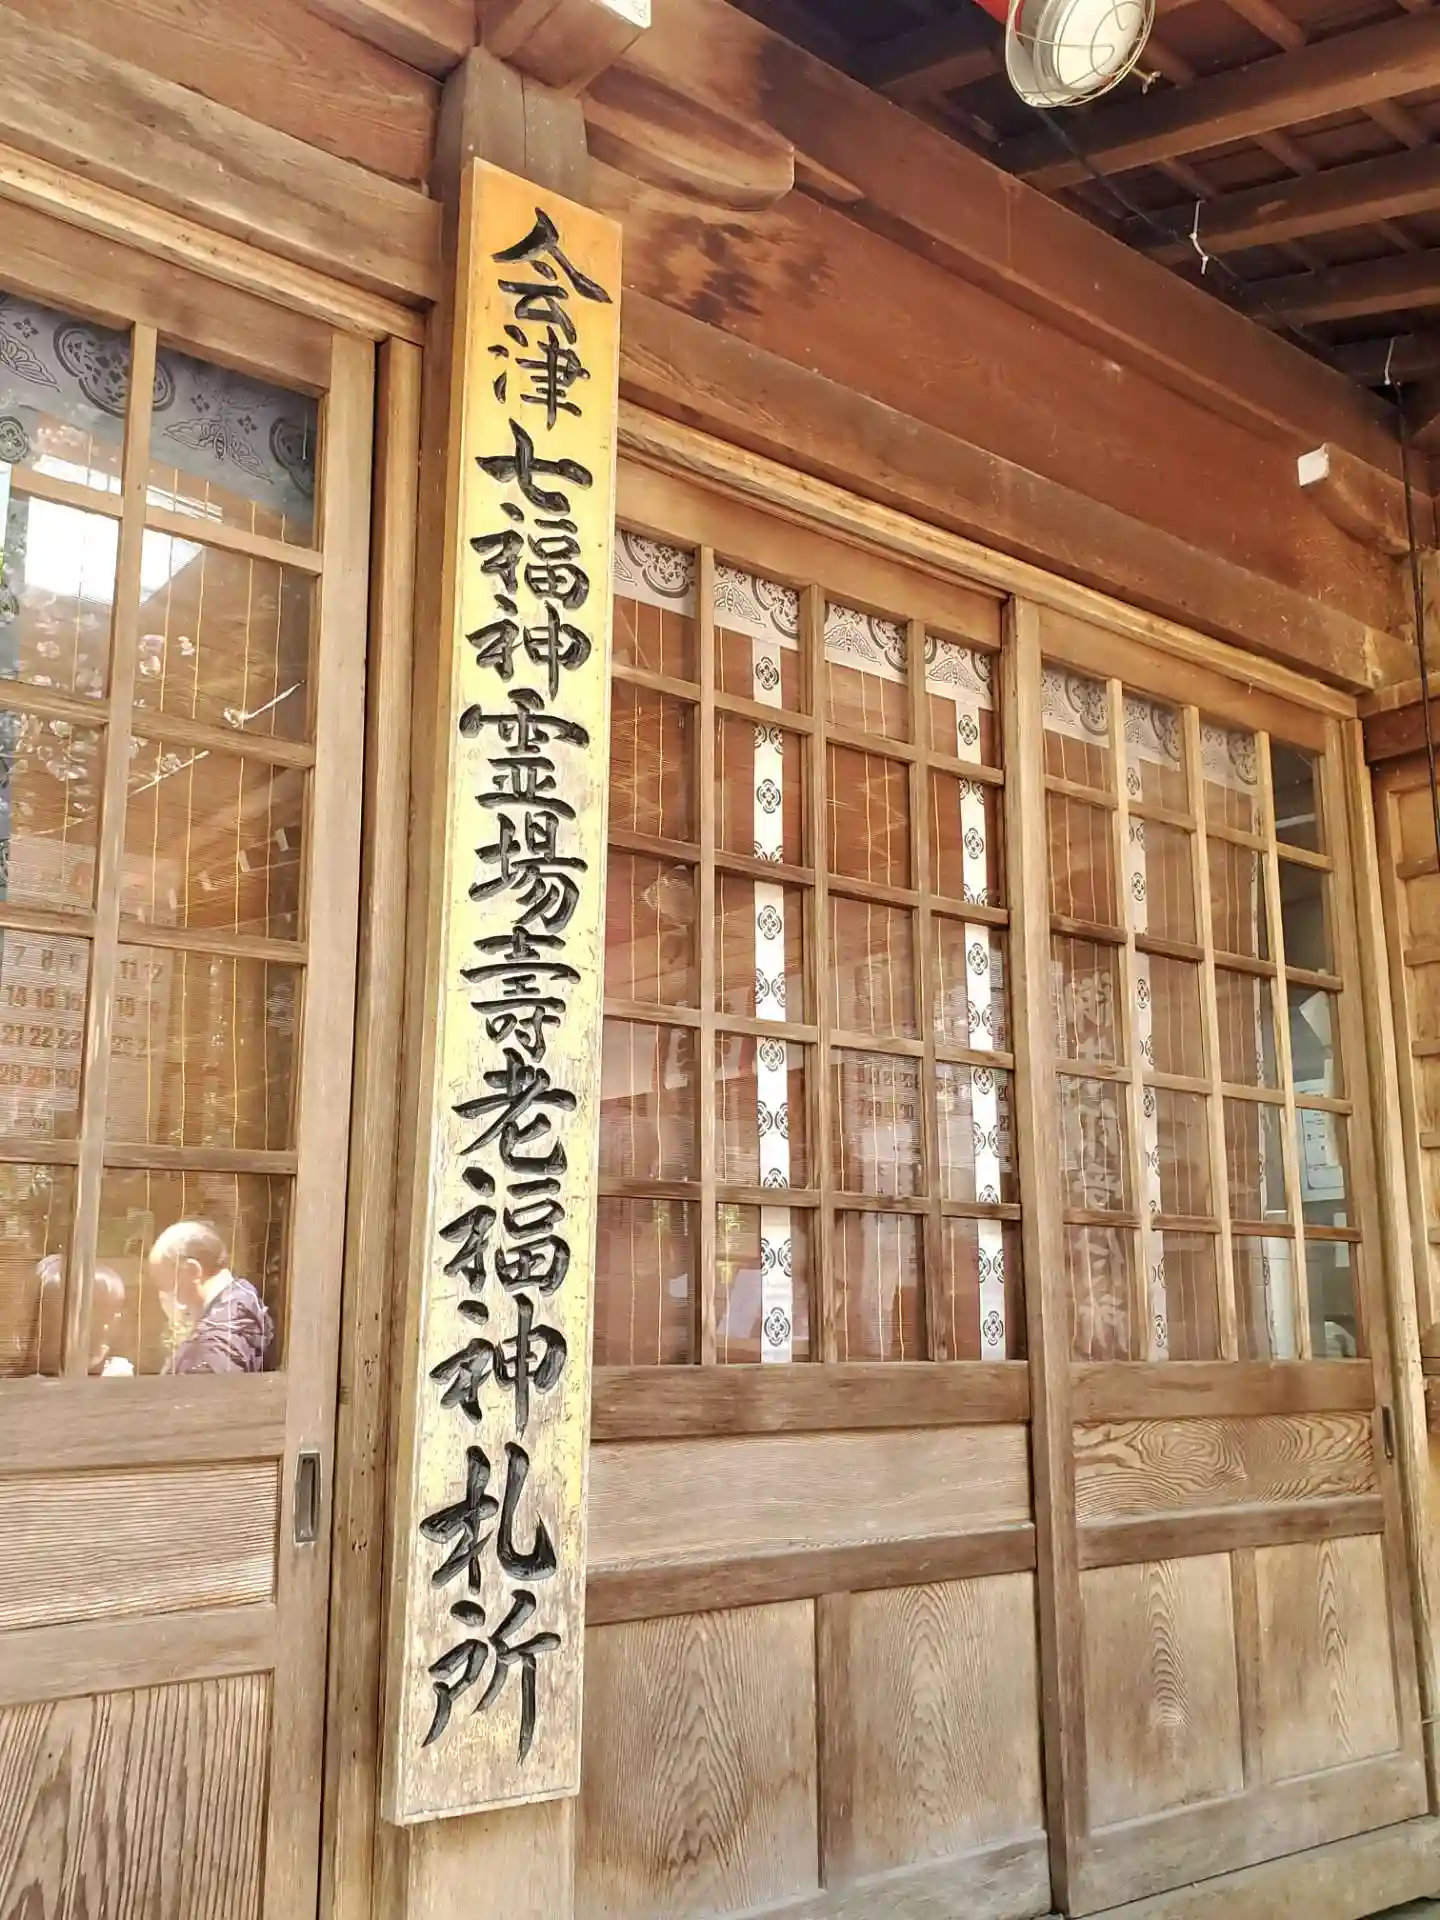 会津七福神霊場寿老福神札所
7 8 9 11 12
14 15 16 18 19
21 22 23 25 26
28 29 30